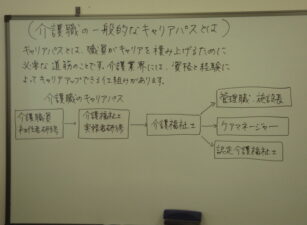 (介護職の一般的なキャリアパスとは)
キャリアパスとは、職員がキャリアを積み上げるために
必要な道筋のことです。介護業界には、資格と経験に
よってキャリアアップできる仕組みがあります。
介護職のキャリアパス
管理職・施設長
介護職員
初任者研修
介護福祉士
実務者研修
介護福祉士
ケアマネージャー
認定介護福祉士